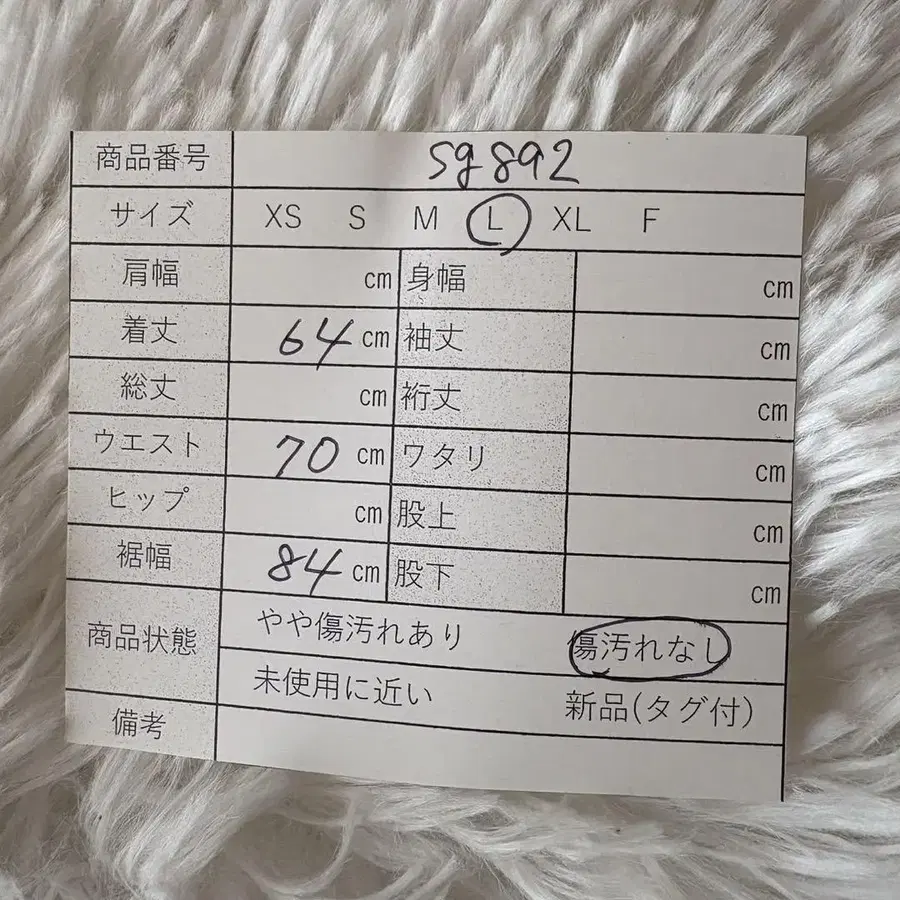 商品番号 sg892
サイズ XS S M L XL F
肩幅 cm 身幅 cm
着丈 64 cm 袖丈 cm
総丈 cm 裄丈 cm
ウエスト 70 cm ワタリ cm
ヒップ cm 股上 cm
裾幅 84 cm 股下 cm
商品状態 やや傷汚れあり 傷汚れなし
未使用に近い 新品(タグ付)
備考